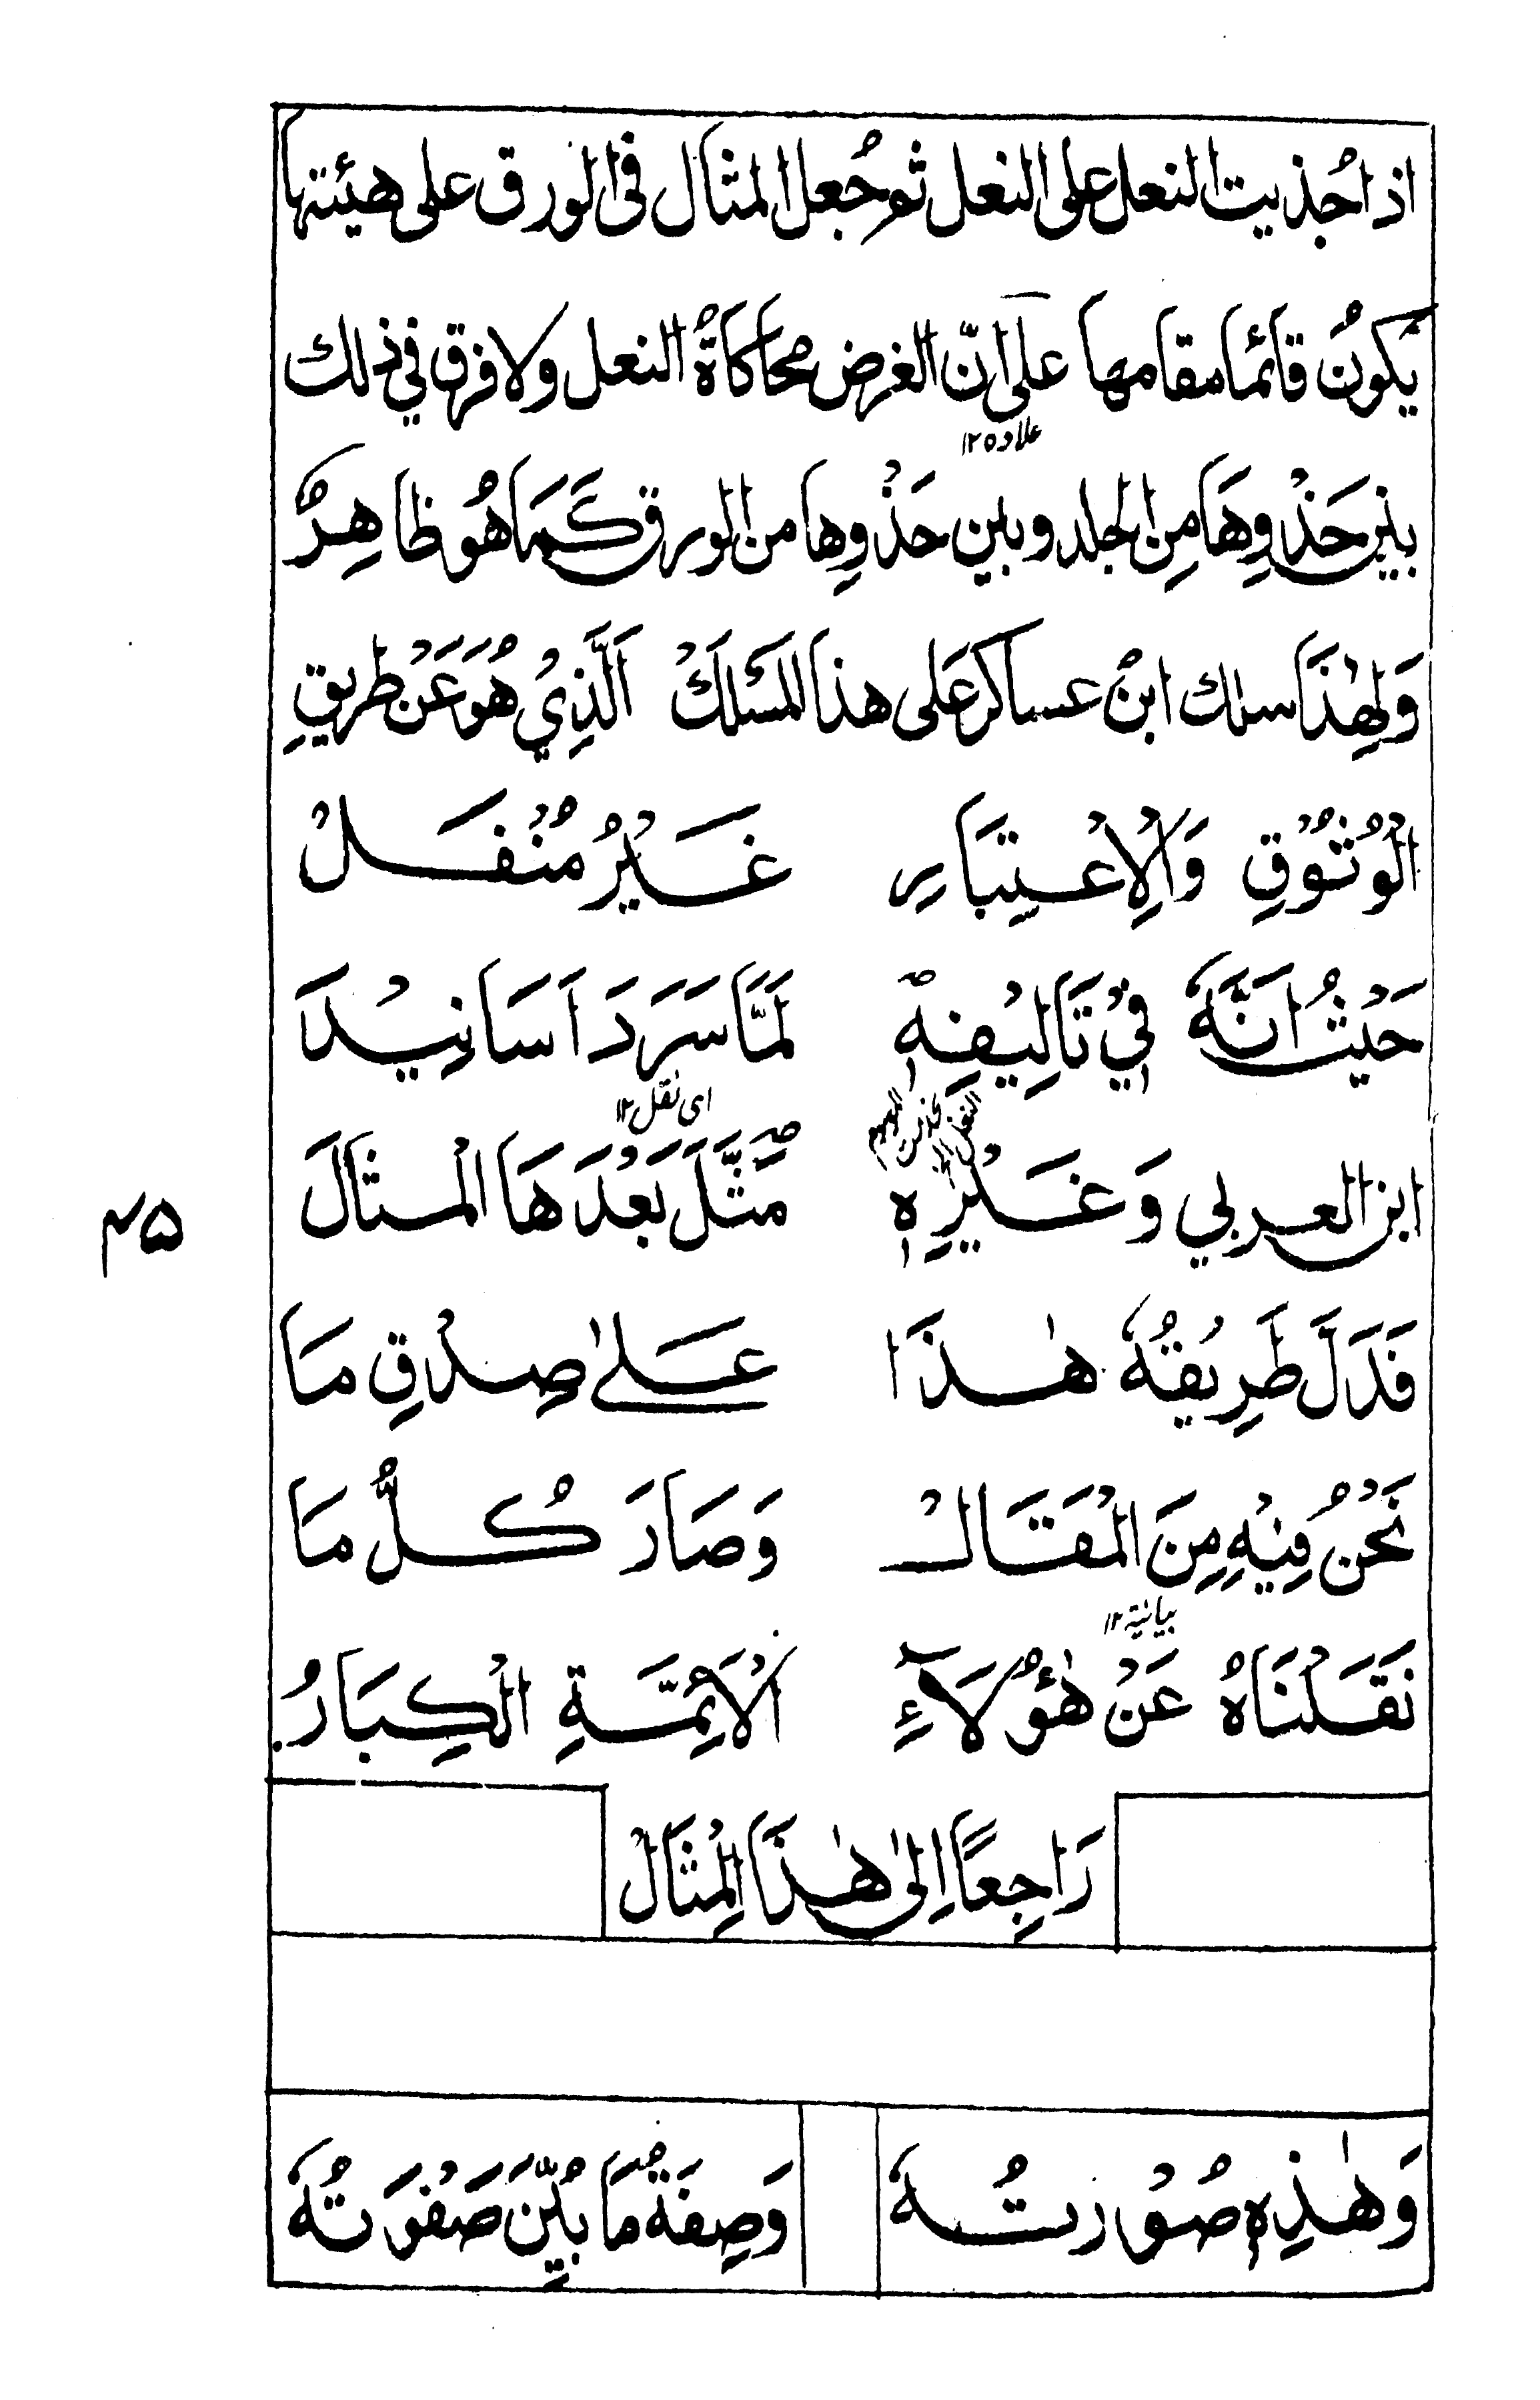 اذا حُذيت النعل على النعل ثم جُعل المثال فى الورق على هيئتها
يكونُ قائما مقامها على انّ الغرض محاكاةُ النعل ولا فرق في ذلك
علاوه ١٢
بين حَذْوِهَا مِن الجلد وبين حَذْوِها من الورق كَمَا هُو ظاهِرٌ
وَلِهٰذَا سلك ابنُ عساكر عَلى هذا المَسْلَكْ اَلَّذِيْ هُوَ عَنْ طريقِ
الْوُثُوْقِ وَالْاِعْتِبَارِ غَيْرُ مُنْفَلْ
حَيْثُ اَنَّهٗ فِيْ تَالِيْفِهٖ لَمَّا سَرَدَ اَسَانِيْدَ
اى نقل ١٢
ابن العربي وَغَيْرِهٖ مَثَّلَ بَعْدَهَا الْمِثَالَ
فَدَلَّ طَرِيقُهٗ هٰذَا عَلىٰ صِدْقِ مَا
نَحْنُ فِيْهِ مِنَ الْمَقَالْ وَصَارَ كُلُّ مَا
بيانية ١٢
نَقَلْنَاهُ عَنْ هٰؤُلَآءِ الْاَئِمَّةِ الْكِبَارُ
رَاجِعًا اِلىٰ هٰذَا الْمِثَالْ
وَهٰذِهٖ صُوْرتُهٗ وَصِفَةُ مَا بُيِّنَ صَفْوَتُهٗ
٤٥